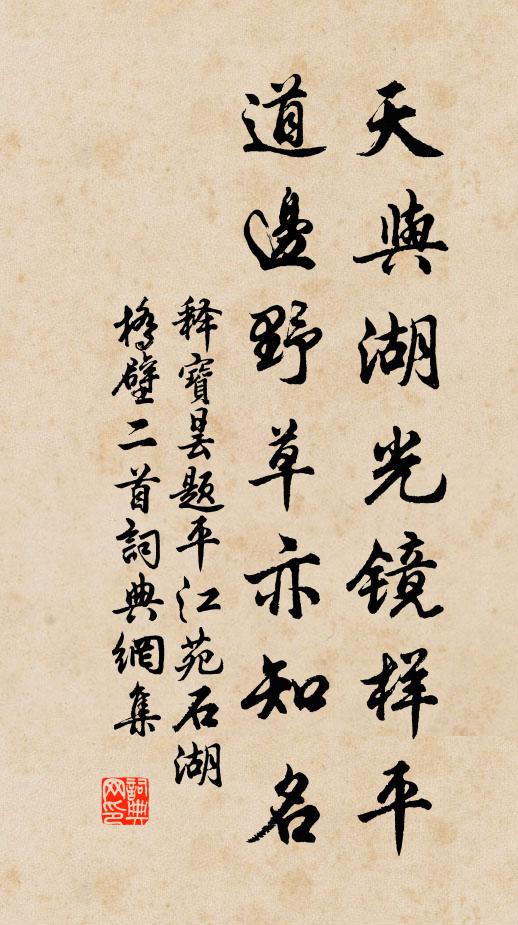 天與湖光镜样平
道邊野草亦知名
释寶昙题平江苑石湖
橋壁二首詞典網集
詞典
网印